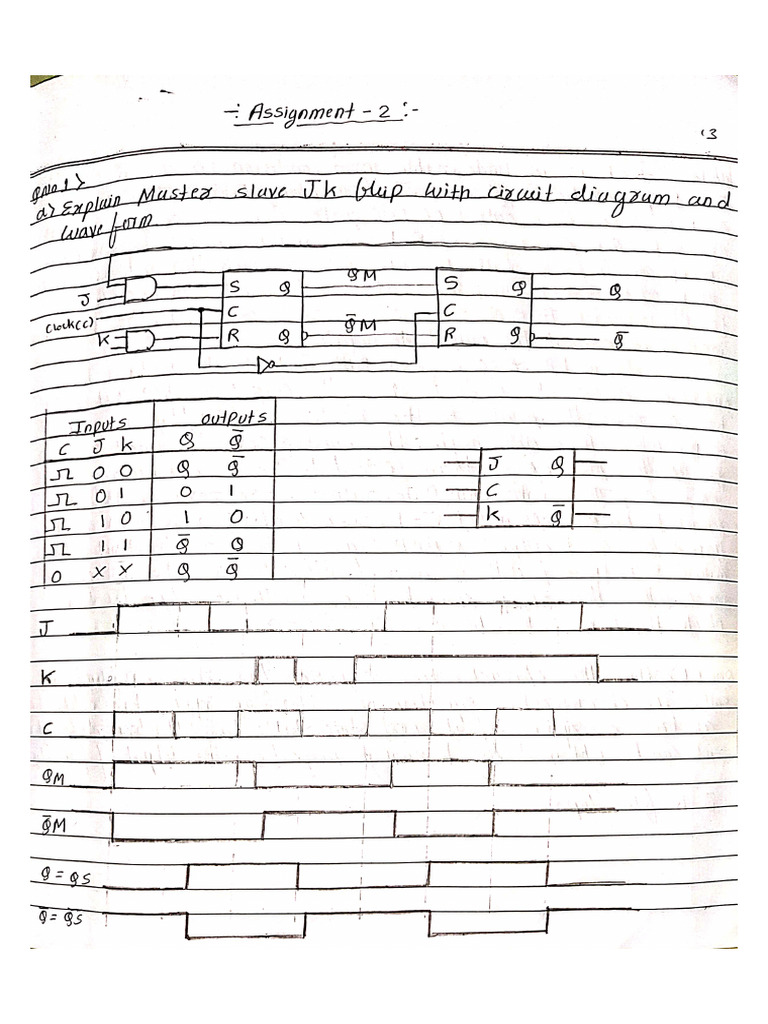 -: Assignment - 2 :-
13
Qno1>
a> Explain Master slave Jk flip with circuit diagram and
wave form
J
clock(c)
K
S Q
C
R Q
QM
Q̄M
S Q
C
R Q
Q
Q̄
Inputs outputs
C J K Q Q̄
0 0 Q Q̄
0 1 0 1
1 0 1 0
1 1 Q̄ Q
0 X X Q Q̄
J Q
C
K Q̄
J
K
C
QM
Q̄M
Q = QS
Q̄ = Q̄S